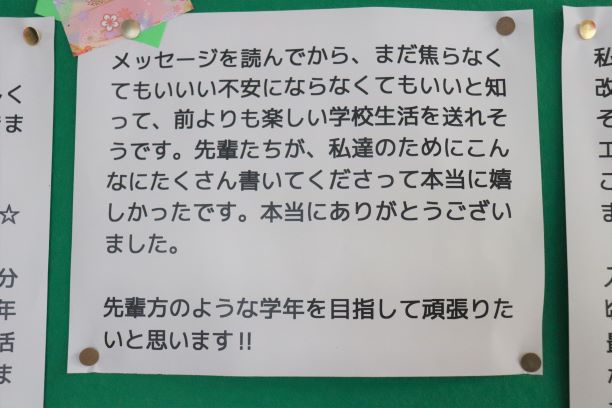 メッセージを読んでから、まだ焦らなく
てもいいい不安にならなくてもいいと知
って、前よりも楽しい学校生活を送れそ
うです。先輩たちが、私達のためにこん
なにたくさん書いてくださって本当に嬉
しかったです。本当にありがとうござい
ました。
先輩方のような学年を目指して頑張りた
いと思います!!
く
ま
☆
分
年
活
ま
私
改
そ
エ
こ
ま